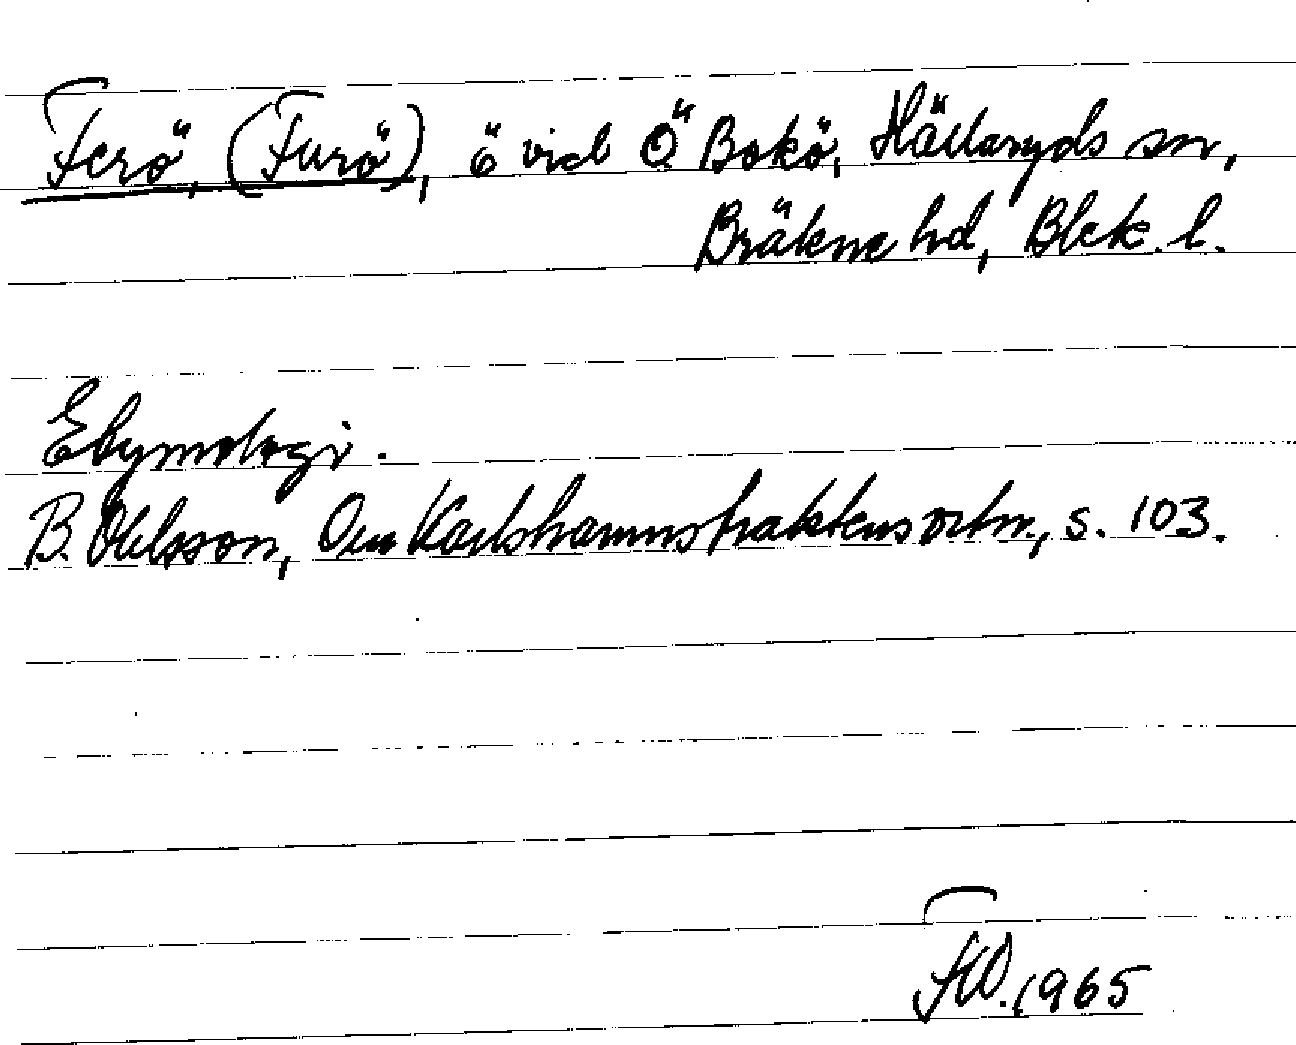 Ferö, (Furö), ö vid Ö Bokö, Hällaryds sn,
Bräkne hd, Blek. l.
Etymologi.
B. Ohlsson, Om Karlshamnstraktens ortn., s. 103.
1965